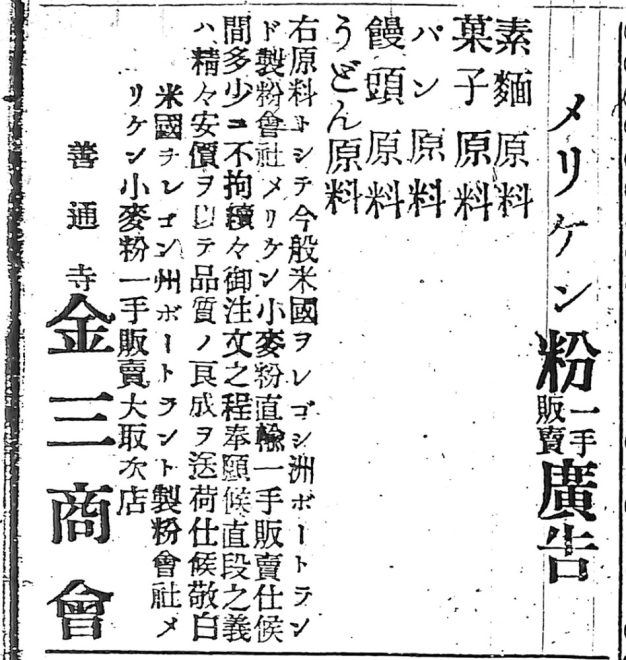 メリケン粉一手販賣廣告
素麵原料
菓子原料
パン原料
饅頭原料
うどん原料
右原料トシテ今般米國ヲレゴン洲ポートラン
ド製粉會社メリケン小麥粉直輸一手販賣仕候
間多少ニ不拘續々御注文之程奉願候直段之義
ハ精々安價ヲ以テ品質ノ良成ヲ送荷仕候敬白
米國ヲレゴン州ポートラント製粉會社メ
リケン小麥粉一手販賣大取次店
善通寺金三商會